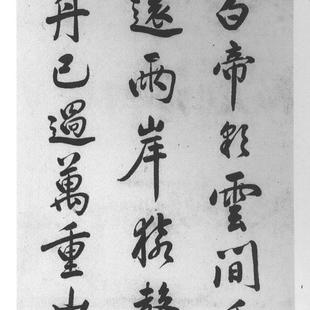 白帝彩雲間
還兩岸猿聲
舟已過萬重山